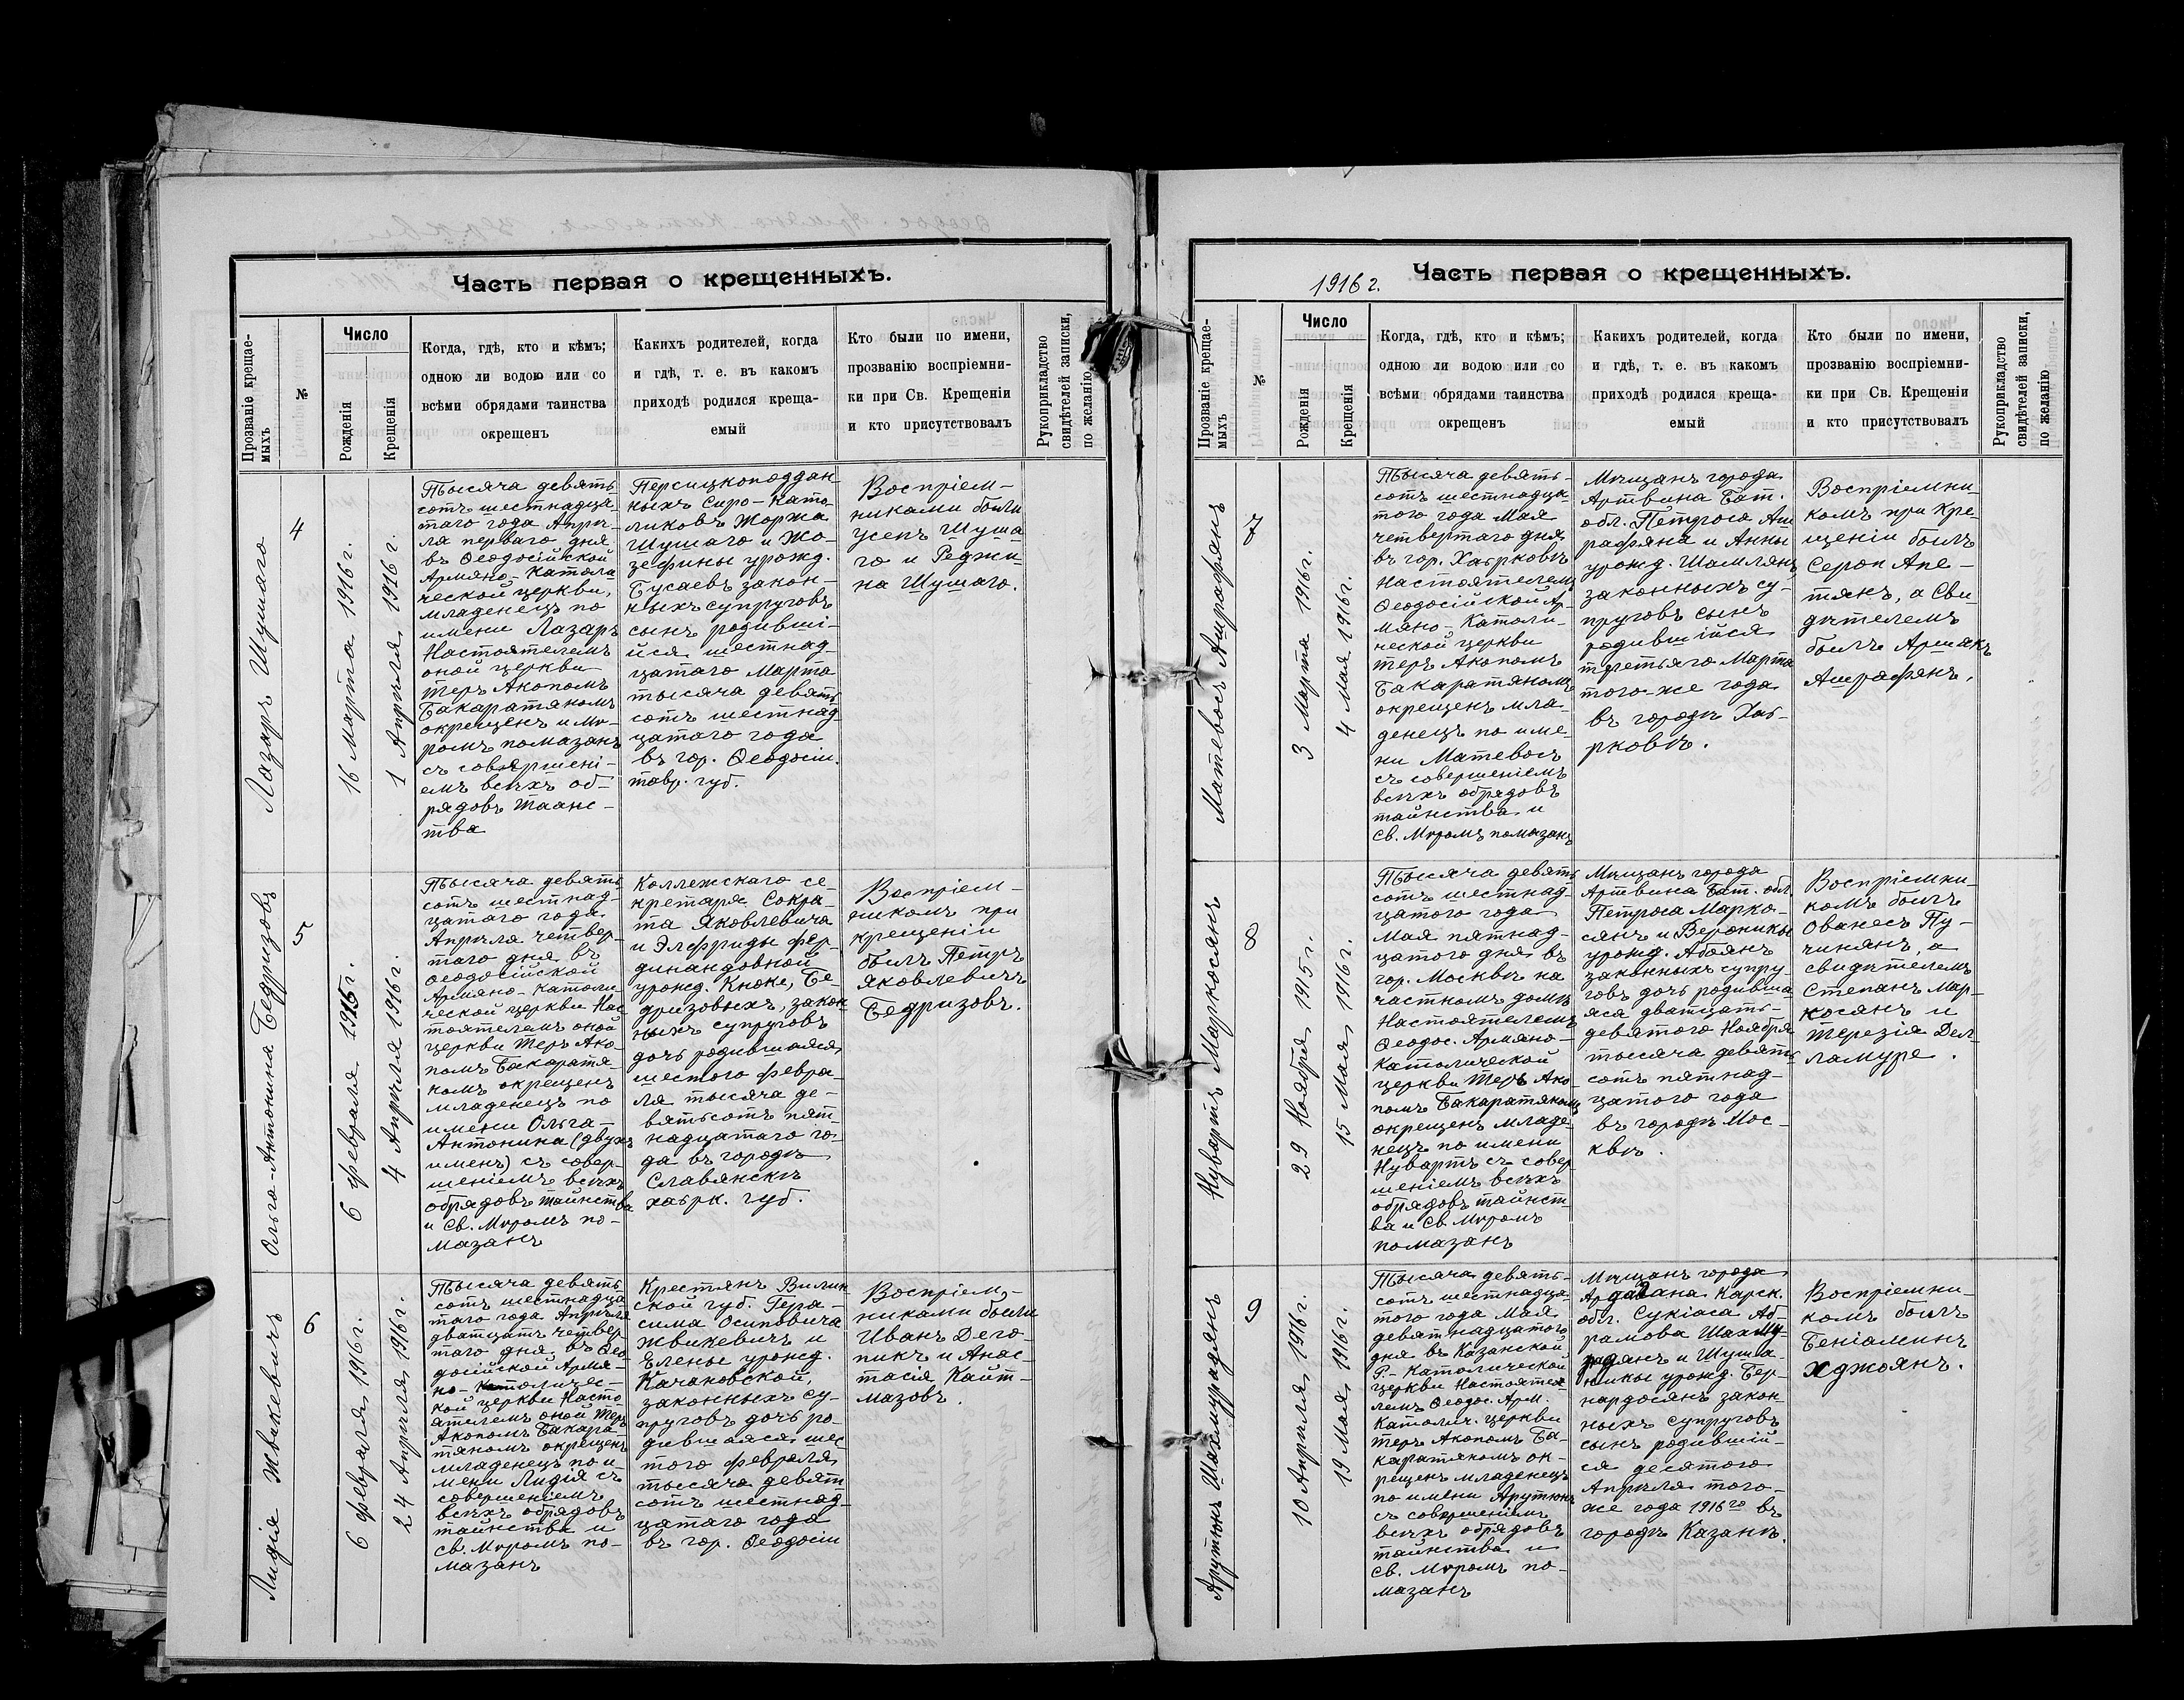 Часть первая о крещенныхъ.
Прозваніе крещае-
мыхъ
№
Число
Рожденія
Крещенія
Когда, гдѣ, кто и кѣмъ;
одною ли водою или со
всѣми обрядами таинства
окрещенъ
Каких родителей, когда
и гдѣ, т. е. въ какомъ
приходѣ родился креща-
емый
Кто были по имени,
прозванію воспріемни-
ки при Св. Крещеніи
и кто присутствовалъ
Рукоприкладство
свидѣтелей записки,
по желанію
Лазаръ Шушаго
4
16 Марта 1916 г.
1 Апрѣля 1916 г.
Тысяча девять
сотъ шестнадца
таго года Апрѣ-
ля перваго дня
въ Ѳеодосійской
Армяно-Католи
ческой церкви,
младенецъ по
имени Лазаръ
Настоятелемъ
оной церкви
Теръ Акопомъ
Бакаратяномъ
окрещенъ и Мѵ-
ромъ помазанъ
съ совершені-
емъ всѣхъ об-
рядовъ таанс-
тва
Персидскоподдан
ныхъ Сиро-Като
ликовъ Жоржа
Шушаго и Жо-
зефины урожд.
Бусаевъ закон-
ныхъ супруговъ
сынъ родивші-
йся шестнад-
цатаго Марта
тысяча девять
сотъ шестнад
цатаго года
въ гор. Ѳеодосіи
тавр. губ.
Воспріем-
никами были
Усепъ Шуша
го и Реджи-
на Шушаго.
Ольга-Антонина Бедризовъ
5
6 февраля 1915 г.
4 Апрѣля 1916 г.
Тысяча девять
сотъ шестнад-
цатаго года
Апрѣля четвер-
таго дня въ
Ѳеодосійской
Армяно-Католи
ческой церкви Нас
тоятелемъ оной
церкви Теръ Ако-
помъ Бакаратя
номъ окрещенъ
младенецъ по
имени Ольга-
Антонина (двухъ
именъ) съ совер-
шеніемъ всѣхъ
обрядовъ таинства
и Св. Мѵромъ по-
мазанъ
Коллежскаго се-
кретаря Сокра-
та Яковлевича
и Элфриды Фер-
динандовной
урожд. Кноке, Бе-
дризовыхъ, закон
ныхъ супруговъ
дочь родившаяся
шестого февра-
ля тысяча де-
вятьсотъ пят-
надцатаго го-
да въ городѣ
Славянскѣ
харьк. губ.
Воспріем-
никомъ при
крещеніи
былъ Петръ
Яковлевичъ
Бедризовъ.
Лидія Жвикевичъ
6
6 февраля 1916 г.
24 Апрѣля 1916 г.
Тысяча девять
сотъ шестнадца
таго года Апрѣля
двадцатъ четвер
таго дня въ Ѳео
досійской Армя-
но-Католичес-
кой церкви Насто
ятелемъ оной Теръ
Акопомъ Бакара-
тяномъ окрещенъ
младенецъ по и-
мени Лидія съ
совершеніемъ
всѣхъ обрядовъ
таинства и
св. Мѵромъ по-
мазанъ
Крестянъ Вилин
ской губ. Гера-
сима Осиповича
Жвикевичъ и
Еленье урожд.
Качановской,
законныхъ су-
пруговъ дочь ро-
дившаяся шес
того февраля
тысяча девят
сотъ шестнад-
цатаго года
въ гор. Ѳеодосіи
Воспріем-
никами были
Иванъ Дего-
пикъ и Анас-
тасія Каит-
мазовъ.
1916 г.
Часть первая о крещенныхъ.
Прозваніе крещае-
мыхъ
№
Число
Рожденія
Крещенія
Когда, гдѣ, кто и кѣмъ;
одною ли водою или со
всѣми обрядами таинства
окрещенъ
Каких родителей, когда
и гдѣ, т. е. въ какомъ
приходѣ родился креща-
емый
Кто были по имени,
прозванію воспріемни-
ки при Св. Крещеніи
и кто присутствовалъ
Рукоприкладство
свидѣтелей записки,
по желанію
Матевосъ Ашрафянъ
7
3 Марта 1916 г.
4 Мая 1916 г.
Тысяча девять-
сотъ шестнадца-
того года Мая
четвертаго дня
въ гор. Харьковѣ
Настоятелемъ
Ѳеодосійской Ар-
мяно-Католи-
ческой церкви
Теръ Акопомъ
Бакаратяномъ
окрещенъ мла-
денецъ по име-
ни Матевосъ
съ совершеніемъ
всѣхъ обрядовъ
таинства и
св. Мѵромъ помазанъ
Мѣщанъ города
Артвина Бат.
обл. Петроса Аш
рафяна и Анны
урожд. Шамлянъ
законныхъ су-
пруговъ сынъ
родившійся
третьяго Марта
того-же года
въ городѣ Харь-
ковѣ.
Воспріемни-
комъ при Кре-
щеніи былъ
Сероп Апе-
тянъ, а Сви-
дѣтелемъ
былъ Аршакъ
Ашрафянъ.
Нувартъ Маркосянъ
8
29 Ноября 1915 г.
15 Мая 1916 г.
Тысяча девять
сотъ шестнад-
цатого года
Мая пятнад-
цатого дня въ
гор. Москвѣ на
частномъ домѣ
Настоятелемъ
Ѳеодос. Армяно-
Католической
церкви Теръ Ако-
помъ Бакаратяномъ
окрещенъ младе-
нецъ по имени
Нувартъ съ совер
шеніемъ всѣхъ
обрядовъ таинст-
ва и Св. Мѵромъ
помазанъ
Мѣщанъ города
Артвина Бат. обл.
Петроса Марко-
сянъ и Вероники
урожд. Абоянъ
законныхъ супру-
говъ дочь родивша-
яся дватцать-
девятого Ноября
тысяча девять
сотъ пятнад-
цатого года
въ городѣ Мос-
квѣ.
Воспріемни-
комъ былъ
Ованесъ Пу-
чинянъ, а
свидѣтелемъ
Степанъ Мар-
косянъ и
Терезія Дел-
ламуре.
Арутюнъ Шахмурадянъ
9
10 Апрѣля 1916 г.
19 Мая 1916 г.
Тысяча девять-
сотъ шестнадца
того года Мая
девятнадцатого
дня въ Казанской
Р.-Католической
церкви Настояте-
лемъ Ѳеодос. Арм.
Католич. церкви
Теръ Акопомъ Ба-
каратяномъ ок-
рещенъ младенецъ
по имени Арутюнъ
съ совершеніемъ
всѣхъ обрядовъ
таинства и
св. Мѵромъ по-
мазанъ
Мѣщанъ города
Ардагана Карск.
обл. Сукіаса Аб-
рамова Шахму-
радянъ и Шуша-
ники урожд. Бер-
нардосянъ закон-
ныхъ супруговъ
сынъ родившій-
ся десятого
Апрѣля того-
же года 1916го въ
городѣ Казани.
Воспріемни-
комъ былъ
Беніаминъ
Хджоянъ.